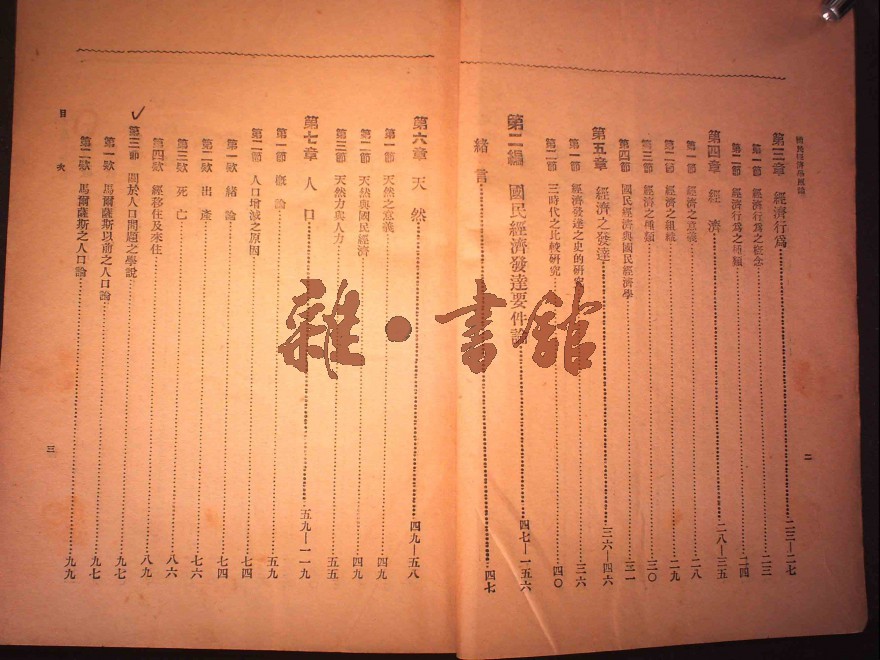 國民經濟學原論
第三章 經濟行爲 二三—二七
第一節 經濟行爲之概念 二三
第二節 經濟行爲之種類 二四
第四章 經濟 二八—三五
第一節 經濟之意義 二八
第二節 經濟之組織 二九
第三節 經濟之種類 三〇
第四節 國民經濟與國民經濟學 三一
第五章 經濟之發達 三六—四六
第一節 經濟發達之史的研究 三六
第二節 三時代之比較研究 四〇
第二編 國民經濟發達要件論 四七—一五六
緒言 四七
二
第六章 天然 四九—五八
第一節 天然之意義 四九
第二節 天然與國民經濟 四九
第三節 天然力與人力 五五
第七章 人口 五九—一一九
第一節 概論 五九
第二節 人口增減之原因 七四
第一款 緒論 七四
第二款 出產 七六
第三款 死亡 八六
第四款 經移住及來住 八九
第三節 關於人口問題之學說 九七
第一款 馬爾薩斯以前之人口論 九七
第二款 馬爾薩斯之人口論 九九
目次
三
雜·書館